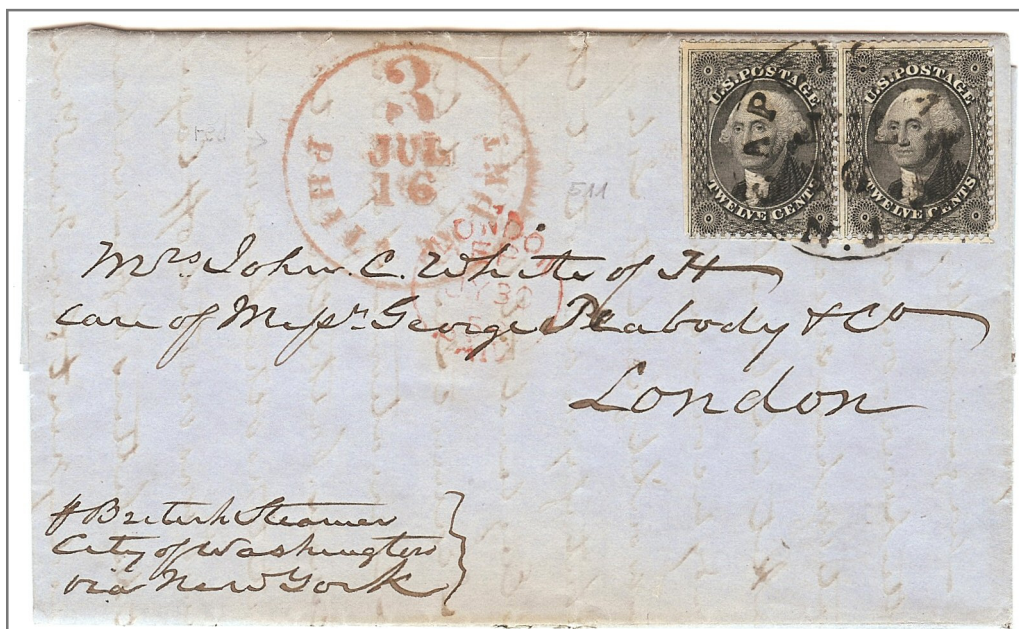 3
JUL
16
PHI
U.S. POSTAGE
TWELVE CENTS
U.S. POSTAGE
TWELVE CENTS
N.J.
E11
LONDON
JY 30
PAID
Mrs John C. White of H
care of Messrs George Peabody & Co
London
British Steamer
City of Washington
via New York